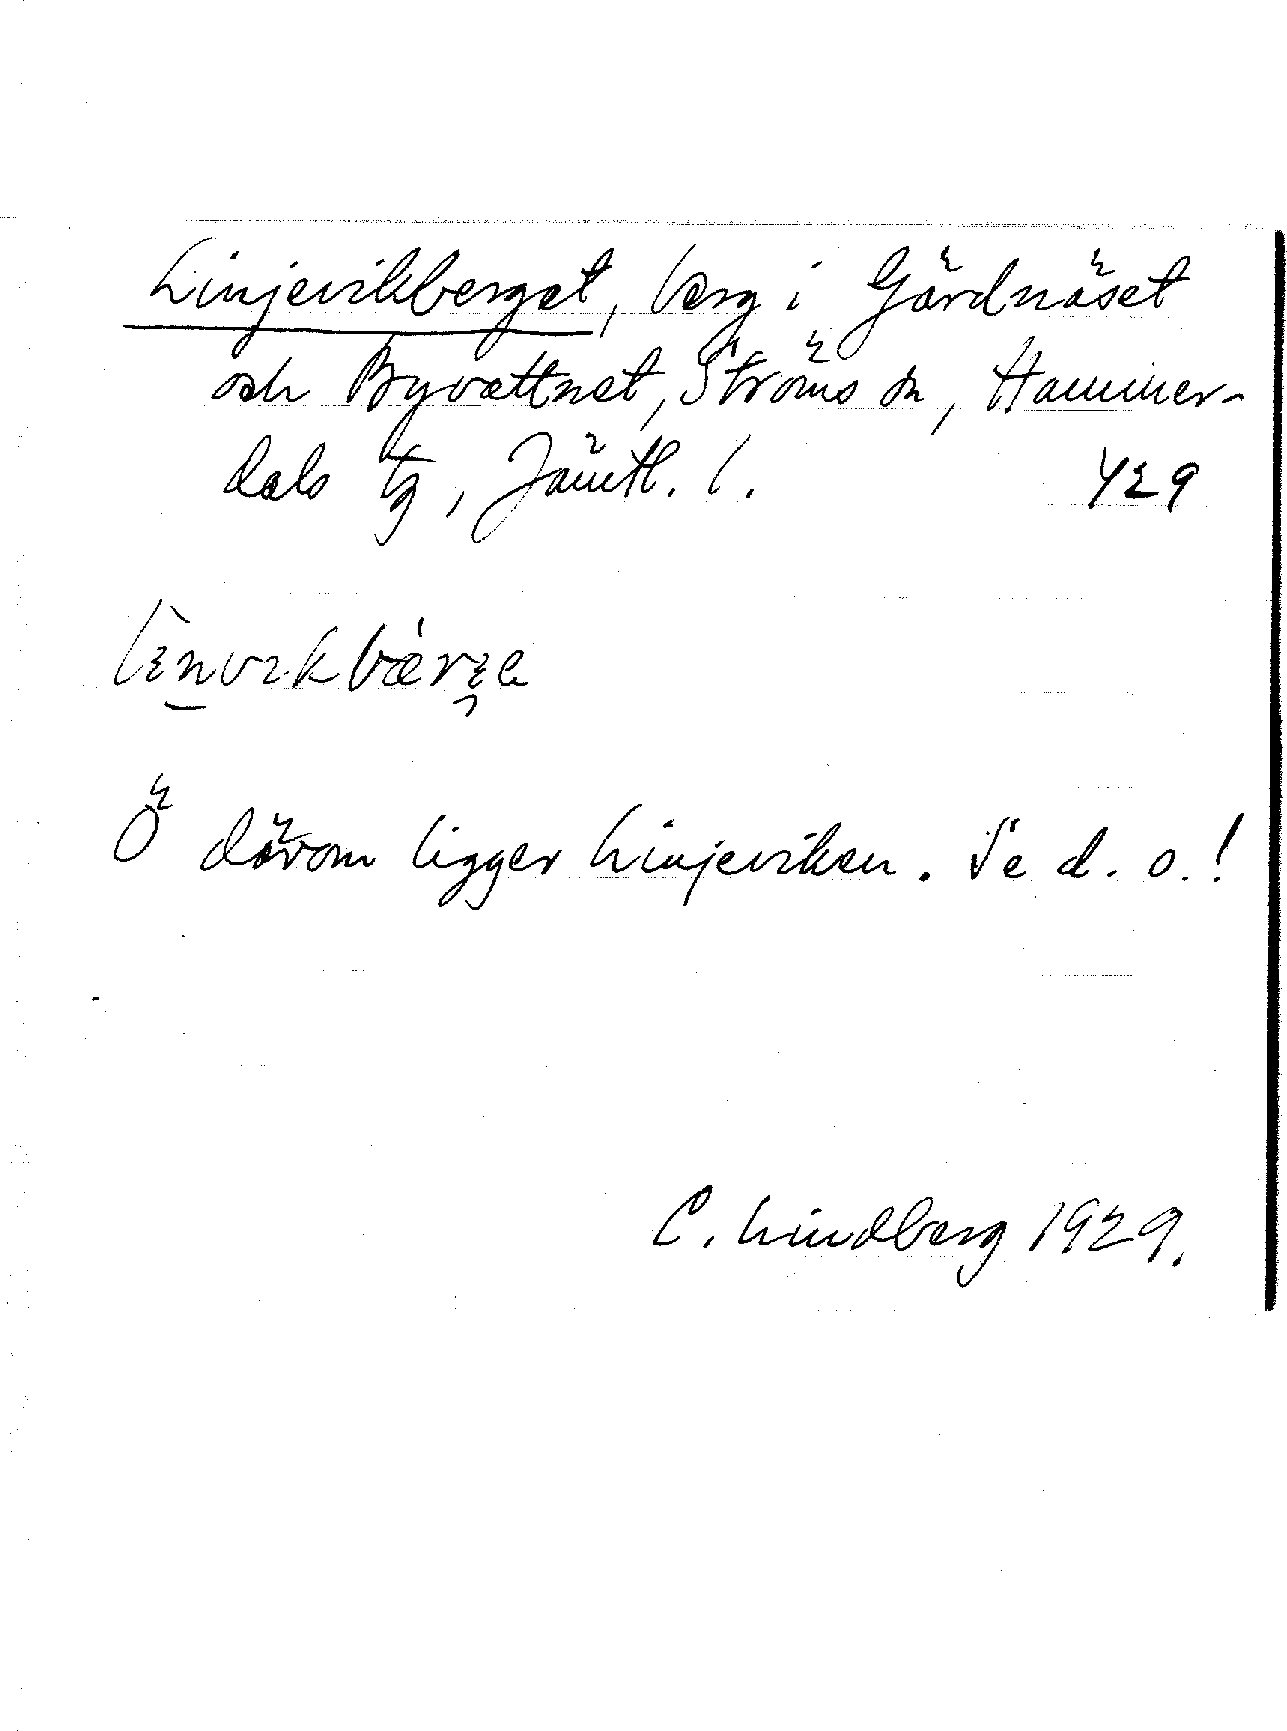 Linjevikberget, berg i Gärdnäset
och Byvattnet, Ströms sn, Hammer-
dals tg, Jämtl. l. 429
Ö därom ligger Linjeviken. Se d. o.!
C. Lindberg 1929.